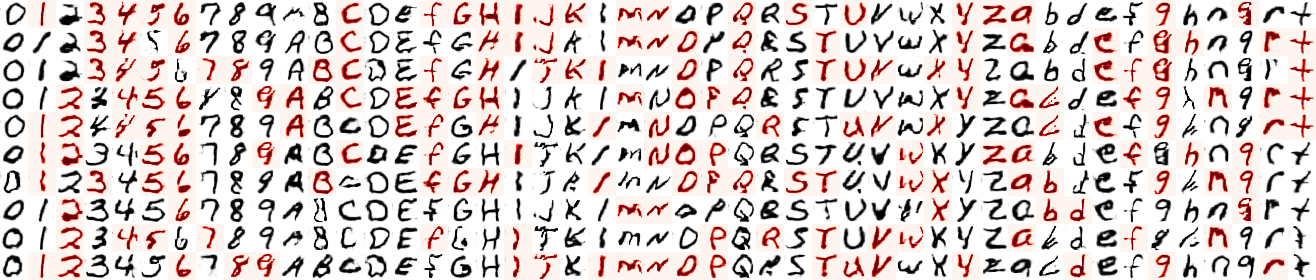 0 1 2 3 4 5 6 7 8 9 A B C D E f G H I J K I m N O P Q R S T U V W X Y Z a b d e f g h n q r t
0 1 2 3 4 5 6 7 8 9 A B C D E f G H I J K I m N O P Q R S T U V W X Y Z a b d e f g h n q r t
0 1 2 3 4 5 6 7 8 9 A B C D E f G H I J K I m N O P Q R S T U V W X Y Z a b d e f g h n q r t
0 1 2 3 4 5 6 7 8 9 A B C D E f G H I J K I m N O P Q R S T U V W X Y Z a b d e f g h n q r t
0 1 2 3 4 5 6 7 8 9 A B C D E f G H I J K I m N O P Q R S T U V W X Y Z a b d e f g h n q r t
0 1 2 3 4 5 6 7 8 9 A B C D E f G H I J K I m N O P Q R S T U V W X Y Z a b d e f g h n q r t
0 1 2 3 4 5 6 7 8 9 A B C D E f G H I J K I m N O P Q R S T U V W X Y Z a b d e f g h n q r t
0 1 2 3 4 5 6 7 8 9 A B C D E f G H I J K I m N O P Q R S T U V W X Y Z a b d e f g h n q r t
0 1 2 3 4 5 6 7 8 9 A B C D E f G H I J K I m N O P Q R S T U V W X Y Z a b d e f g h n q r t
0 1 2 3 4 5 6 7 8 9 A B C D E f G H I J K I m N O P Q R S T U V W X Y Z a b d e f g h n q r t